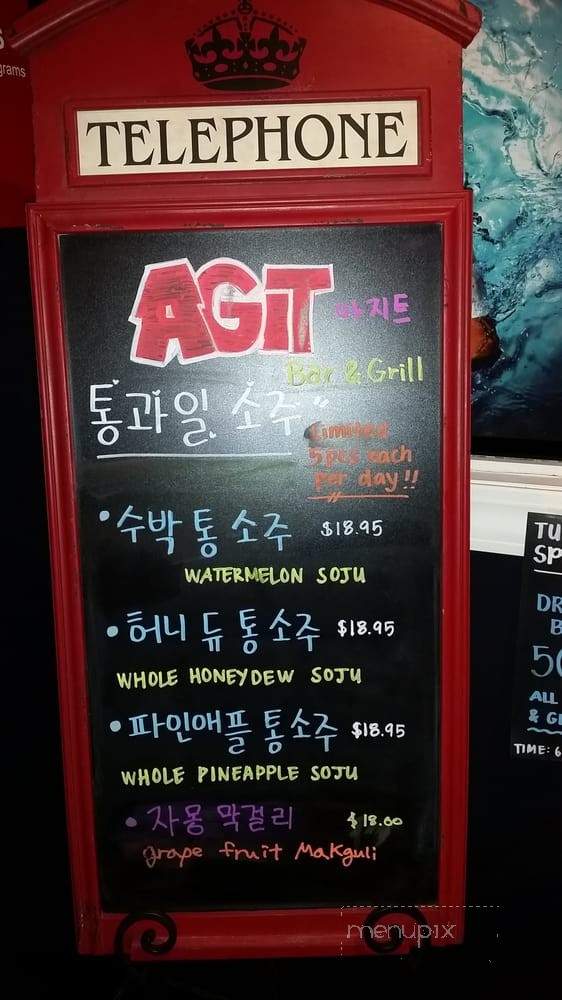 S
grams
TELEPHONE
AGIT 아지트
Bar & Grill
통과일 소주"
Limited
5pcs each
per day!!
• 수박 통 소주 $18.95
WATERMELON SOJU
• 허니 듀 통 소주 $18.95
WHOLE HONEYDEW SOJU
• 파인애플 통소주 $18.95
WHOLE PINEAPPLE SOJU
• 자몽 막걸리 $18.00
grape fruit Makguli
TU
SP
DR
B
50
ALL
& G
TIME: 6
menupix